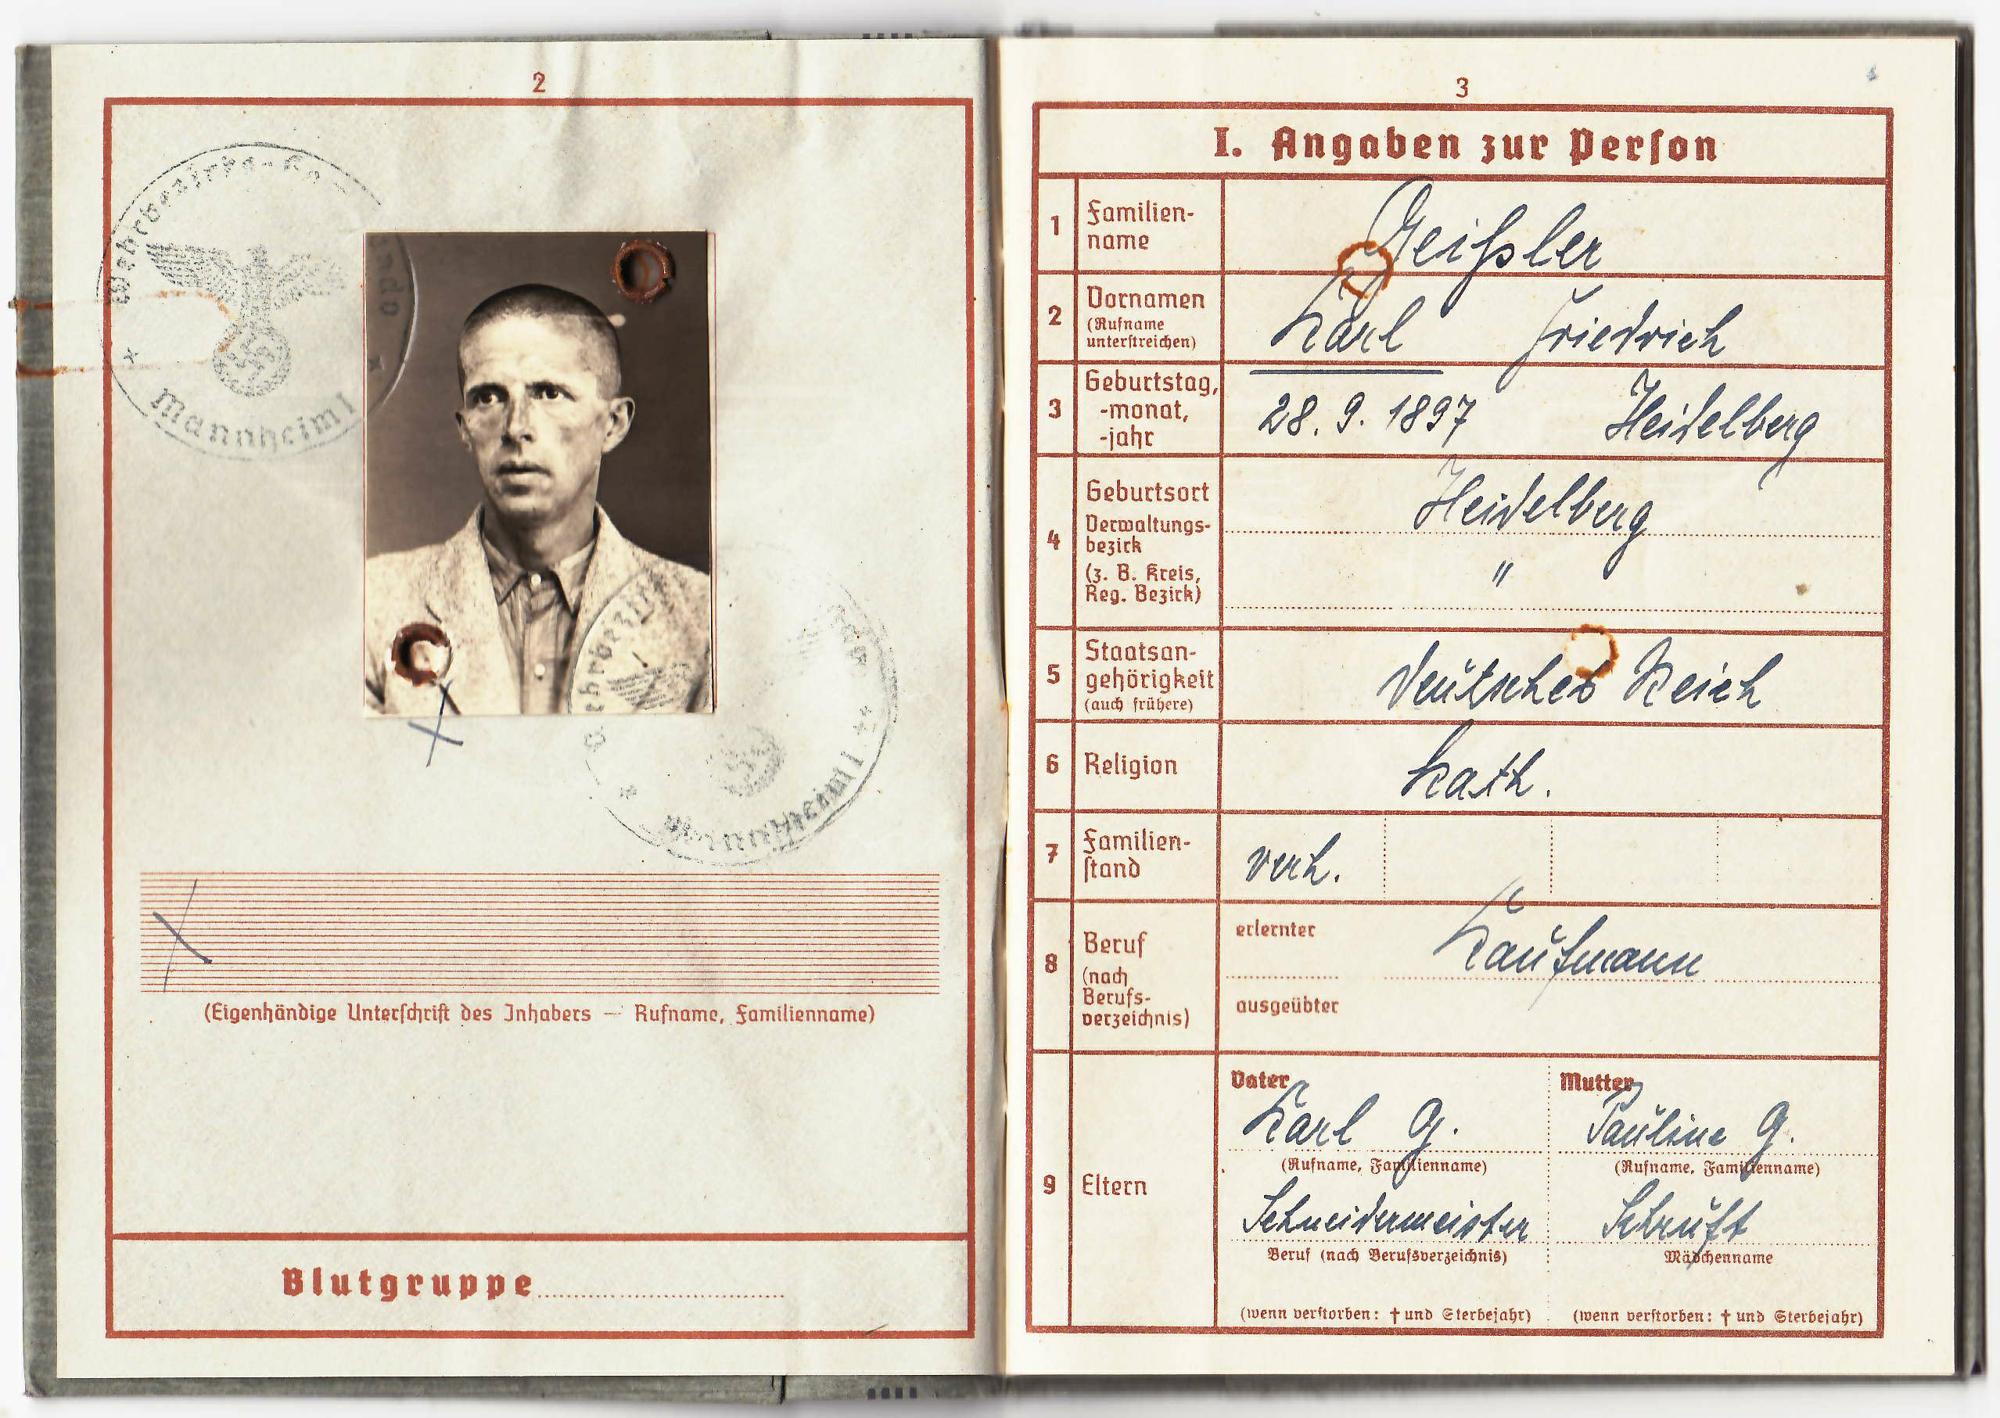 2
Wehrbezirks-Ko
ndo
Mannheim I
Wehrbezir
Mannheim I
(Eigenhändige Unterschrift des Inhabers — Rufname, Familienname)
Blutgruppe
3
I. Angaben zur Person
1
Familien-
name
Geißler
2
Vornamen
(Rufname
unterstreichen)
Karl Friedrich
3
Geburtstag,
-monat,
-jahr
28. 9. 1897 Heidelberg
4
Geburtsort
Verwaltungs-
bezirk
(z. B. Kreis,
Reg. Bezirk)
Heidelberg
"
5
Staatsan-
gehörigkeit
(auch frühere)
Deutsches Reich
6
Religion
kath.
7
Familien-
stand
verh.
8
Beruf
(nach
Berufs-
verzeichnis)
erlernter
Kaufmann
ausgeübter
9
Eltern
Vater
Karl G.
(Rufname, Familienname)
Schneidermeister
Beruf (nach Berufsverzeichnis)
(wenn verstorben: † und Sterbejahr)
Mutter
Pauline G.
(Rufname, Familienname)
Mädchenname
(wenn verstorben: † und Sterbejahr)